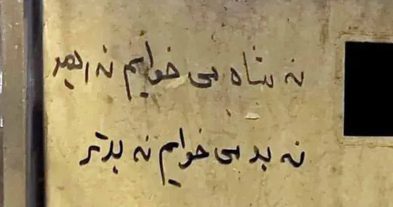 نه شاه می خوایم نه رهبر
نه بد می خوایم نه بدتر